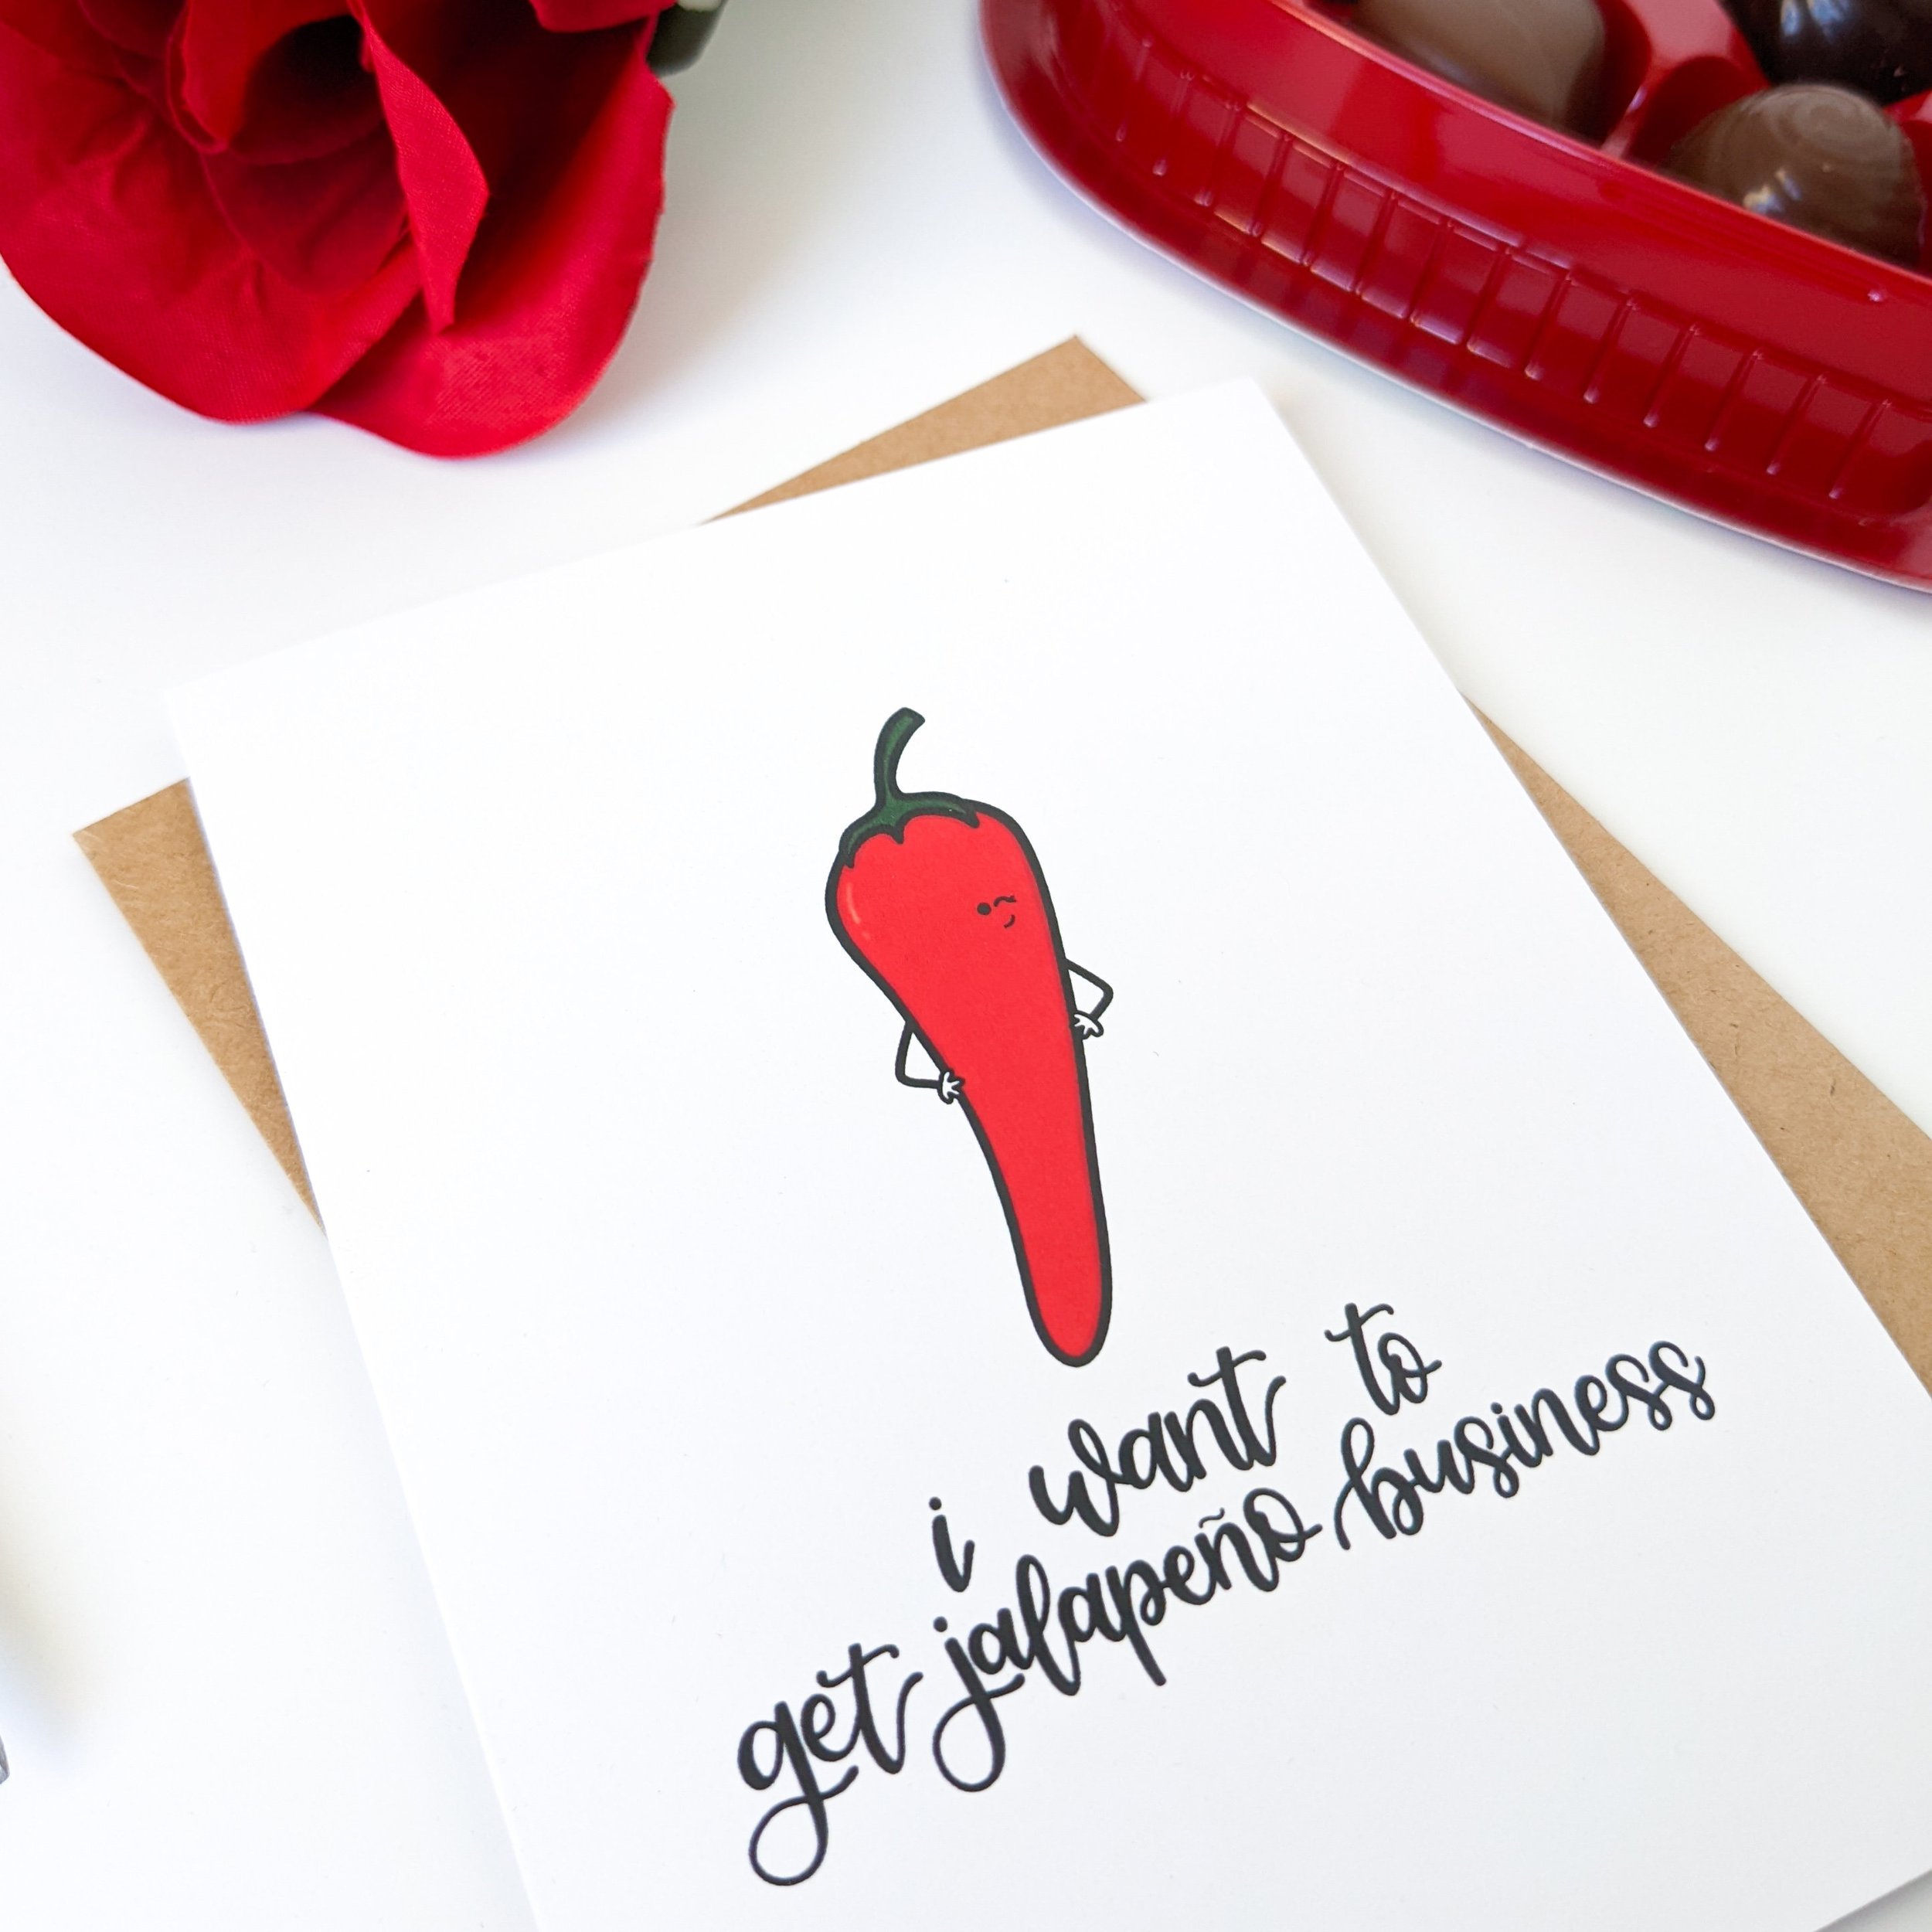 i want to
get jalapeño business